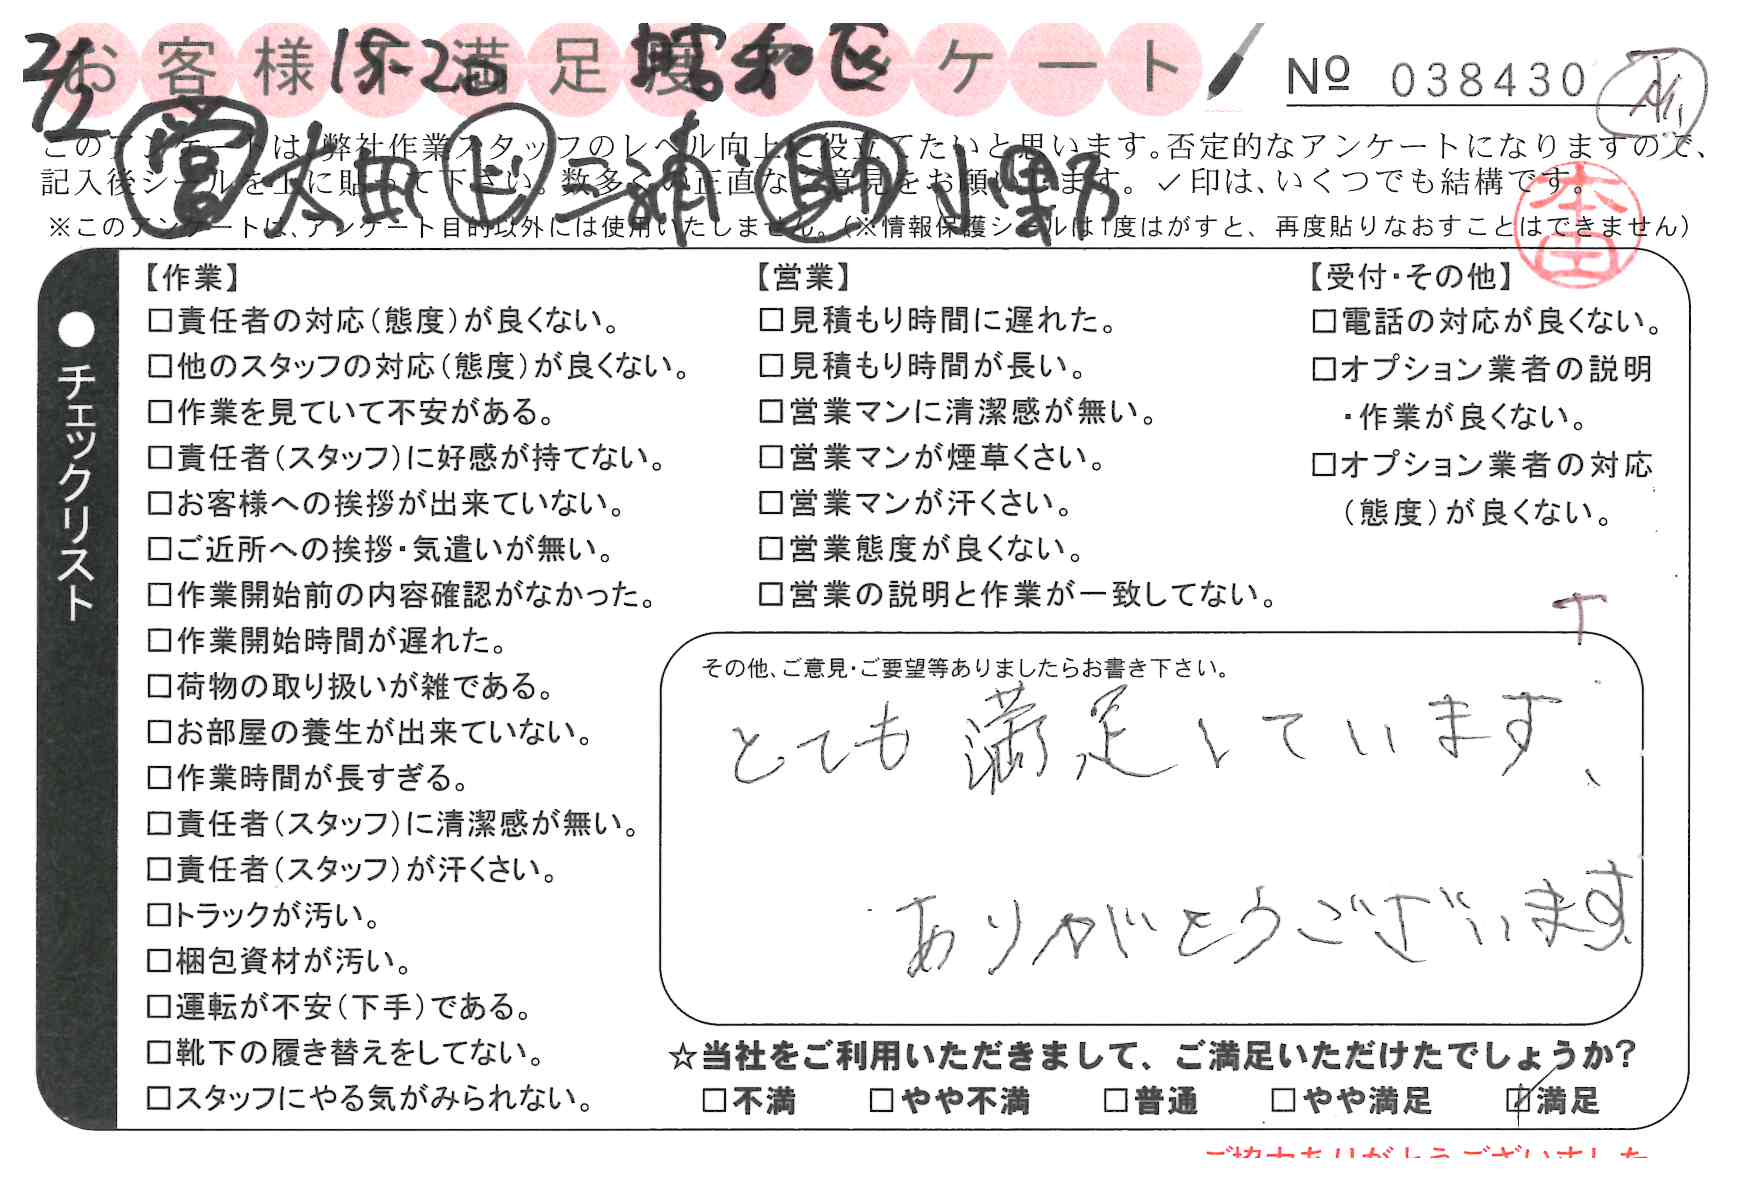 お客様不満足度アンケート
2/2 18-25 昭和区
№ 038430
このアンケートは、弊社作業スタッフのレベル向上に役立てたいと思います。否定的なアンケートになりますので、
記入後シールを上に貼って下さい。数多くの正直なご意見をお願いします。✓印は、いくつでも結構です。
※このアンケートは、アンケート目的以外には使用いたしません。(※情報保護シールは1度はがすと、再度貼りなおすことはできません)
営 太田 ド 三浦 助 小野
本田
チェックリスト
【作業】
□責任者の対応(態度)が良くない。
□他のスタッフの対応(態度)が良くない。
□作業を見ていて不安がある。
□責任者(スタッフ)に好感が持てない。
□お客様への挨拶が出来ていない。
□ご近所への挨拶・気遣いが無い。
□作業開始前の内容確認がなかった。
□作業開始時間が遅れた。
□荷物の取り扱いが雑である。
□お部屋の養生が出来ていない。
□作業時間が長すぎる。
□責任者(スタッフ)に清潔感が無い。
□責任者(スタッフ)が汗くさい。
□トラックが汚い。
□梱包資材が汚い。
□運転が不安(下手)である。
□靴下の履き替えをしてない。
□スタッフにやる気がみられない。
【営業】
□見積もり時間に遅れた。
□見積もり時間が長い。
□営業マンに清潔感が無い。
□営業マンが煙草くさい。
□営業マンが汗くさい。
□営業態度が良くない。
□営業の説明と作業が一致してない。
【受付・その他】
□電話の対応が良くない。
□オプション業者の説明
・作業が良くない。
□オプション業者の対応
(態度)が良くない。
その他、ご意見・ご要望等ありましたらお書き下さい。
とても満足しています、
ありがとうございます
☆当社をご利用いただきまして、ご満足いただけたでしょうか?
□不満 □やや不満 □普通 □やや満足 ☑満足
ご協力ありがとうございました